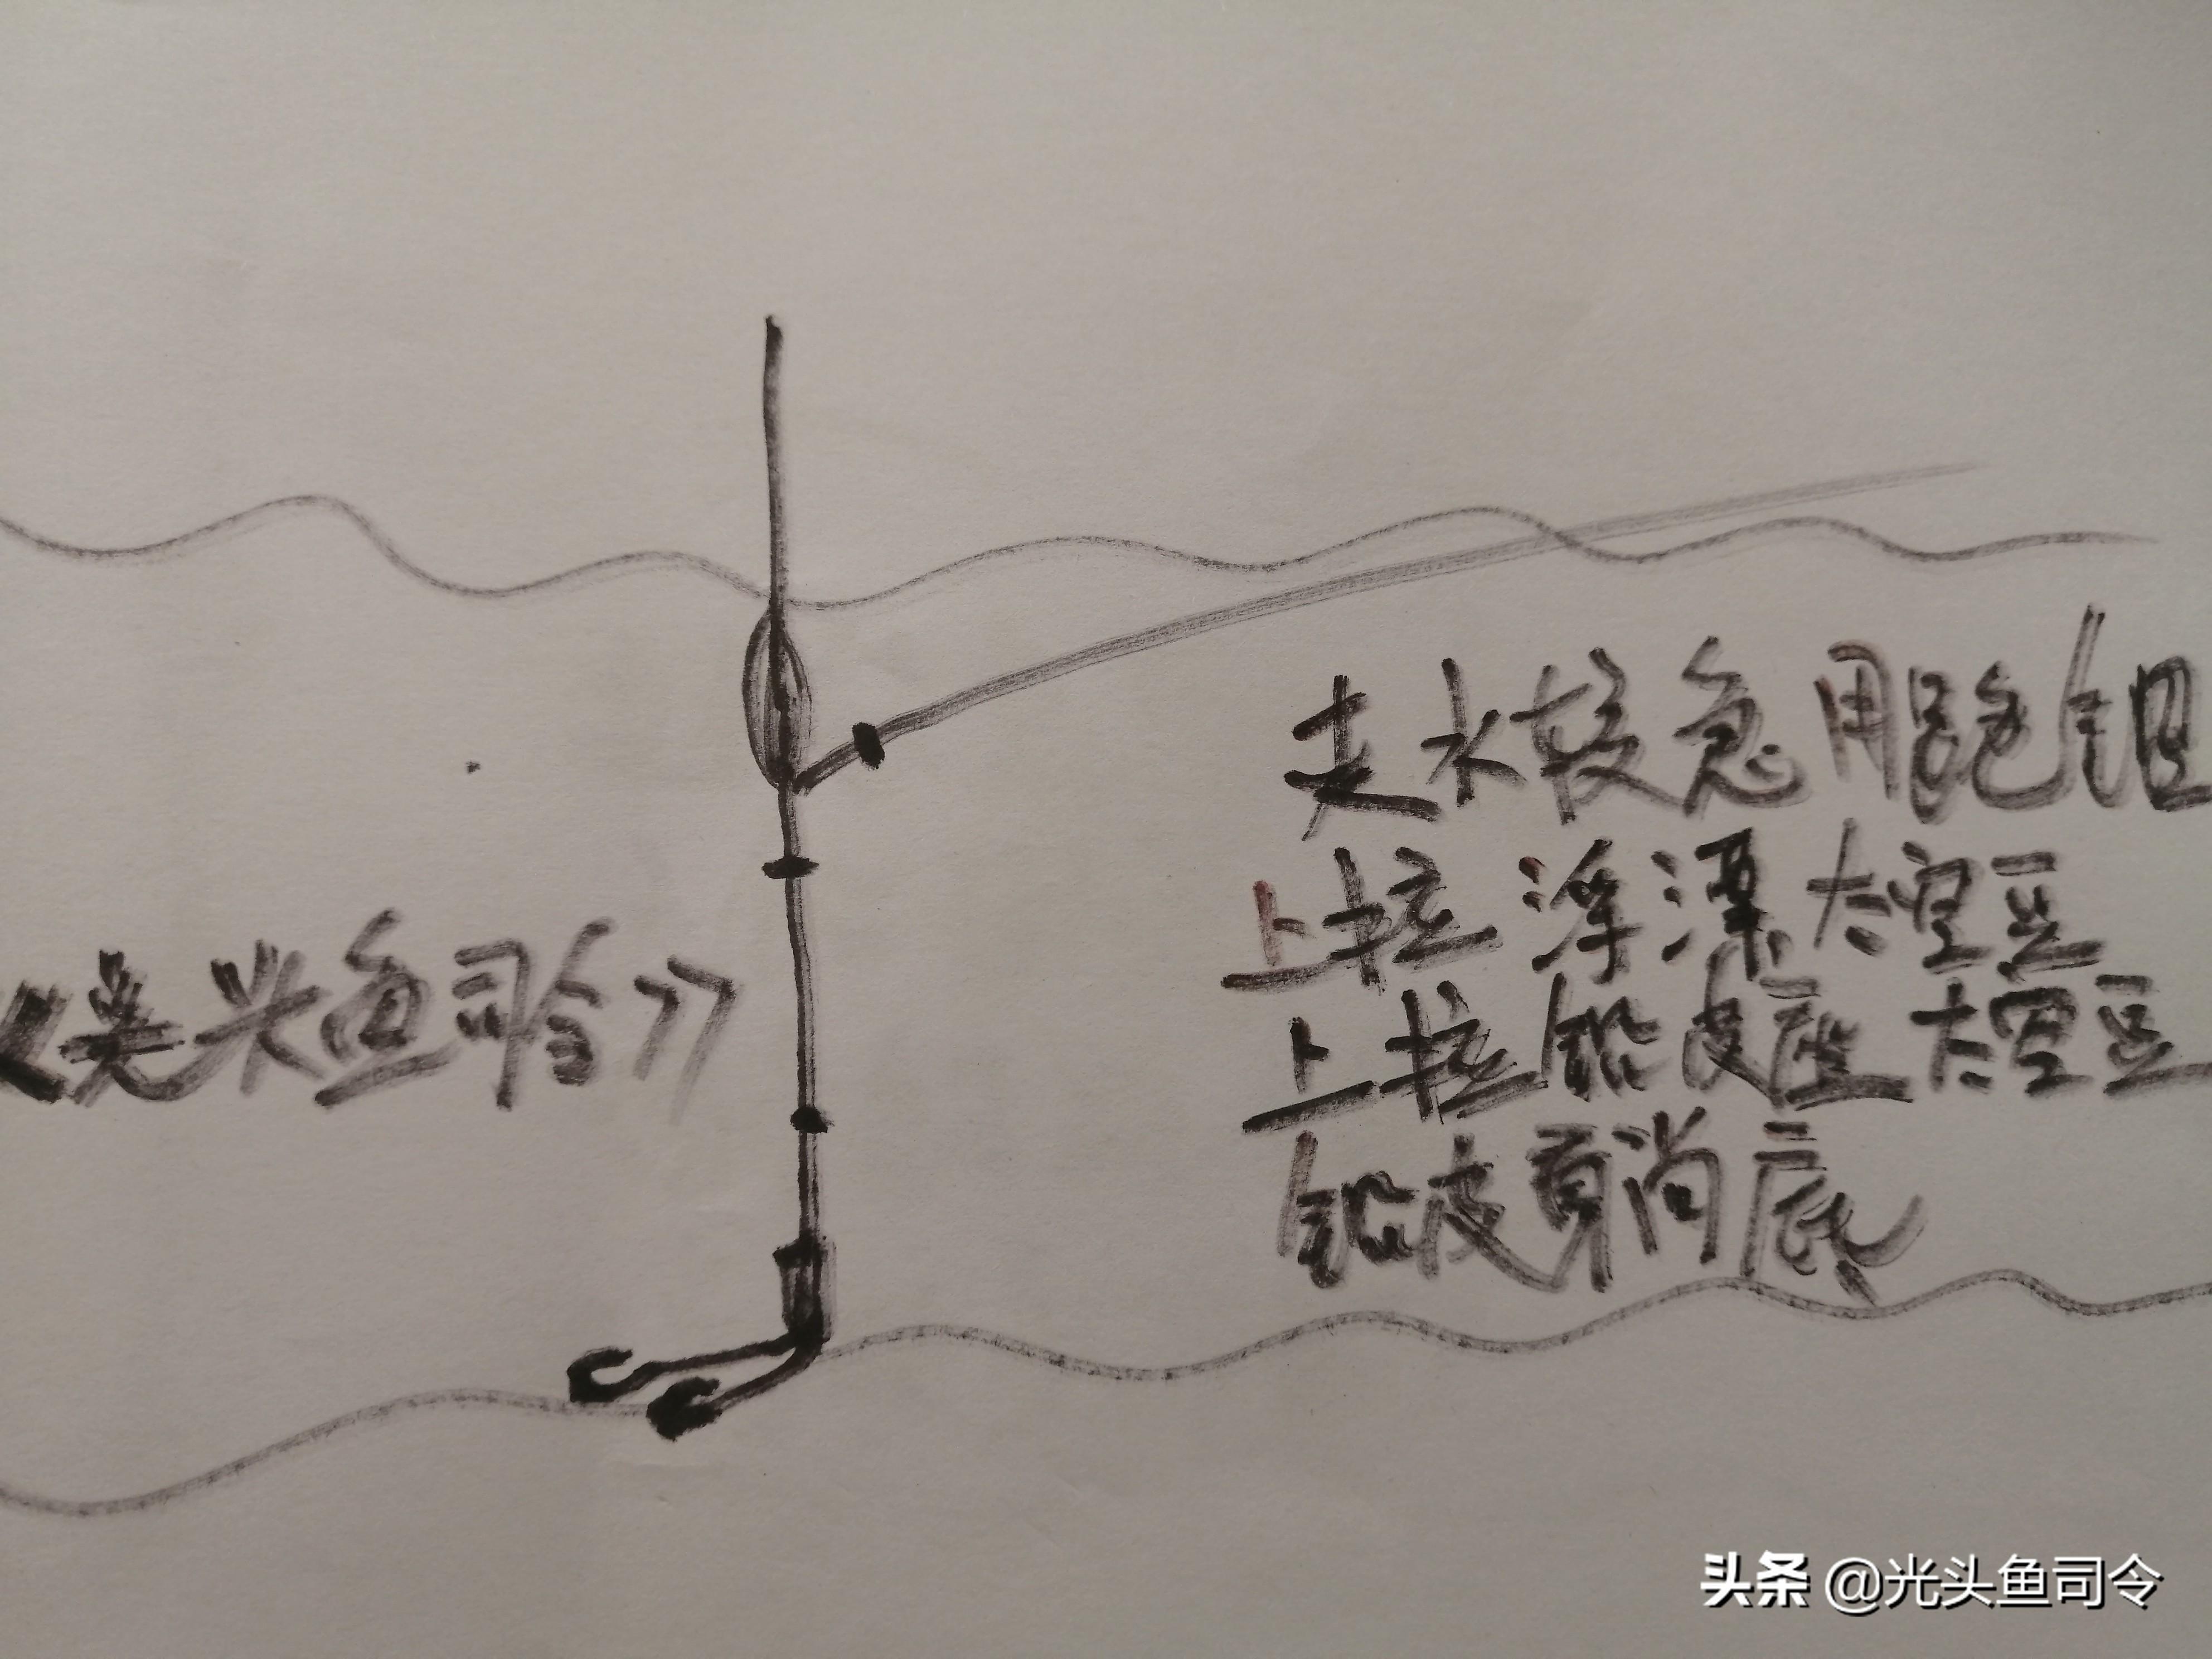 走水较急用跑铅
上拉浮漂太空豆
上拉铅皮座太空豆
铅皮要躺底
《光头鱼司令》
头条 @光头鱼司令